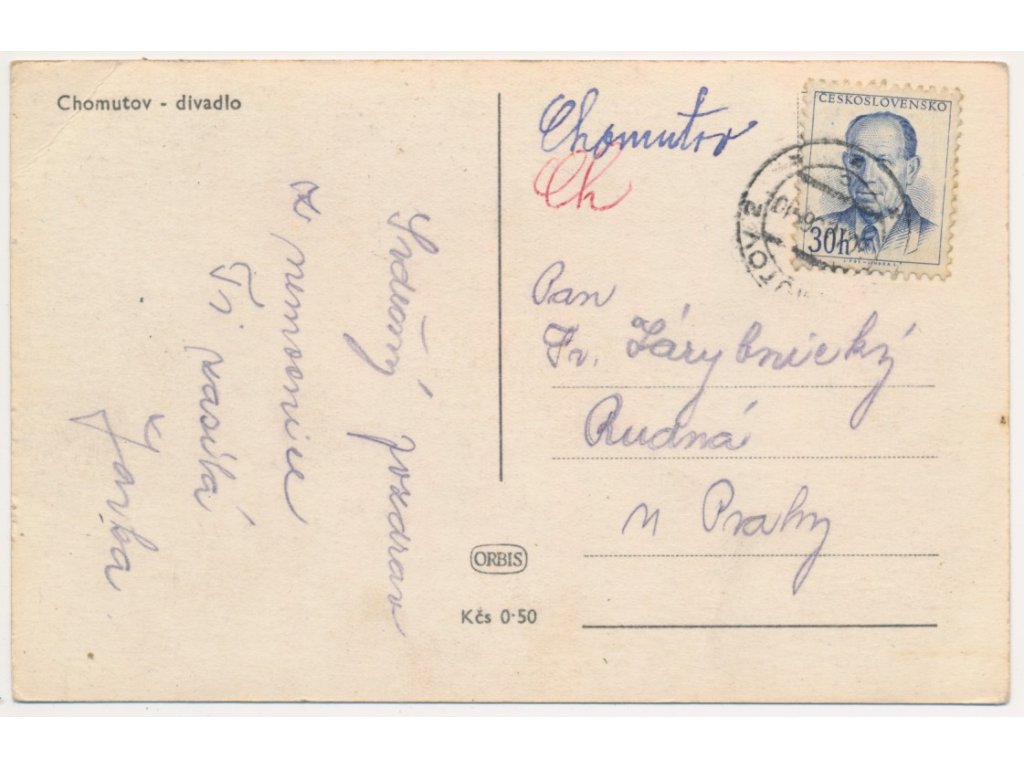 Chomutov - divadlo
Srdečný pozdrav
z nemocnice
Ti zasílá
Jarka
Chomutov
Ch
ČESKOSLOVENSKO
30h
Pan
Fr. Zárybnický
Rudná
u Prahy
ORBIS
Kčs 0·50